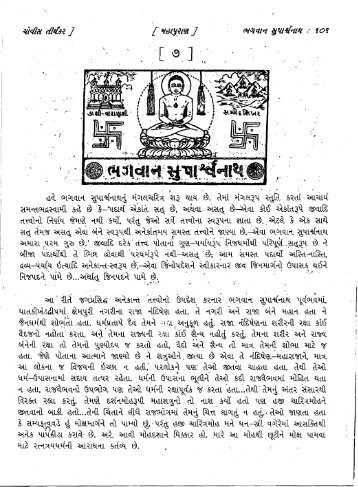 ચોવીસ તીર્થંકર ]
[ મહાપુરાણ ]
ભગવાન સુપાર્શ્વનાથ : ૧૦૧
[ ૭ ]
ભગવાન સુપાર્શ્વનાથ
હવે ભગવાન સુપાર્શ્વનાથનું મંગલચરિત્ર શરૂ થાય છે. તેમાં મંગલરૂપ સ્તુતિ કરતાં આચાર્ય
સમન્તભદ્રસ્વામી કહે છે કે–‘પદાર્થ એકાંત સત્ છે, અથવા અસત્ છે–એવા કોઈ એકાંતરૂપે જીવાદિ
તત્ત્વોનો નિર્ણય જેમણે નથી કર્યો, પરંતુ જેઓ સર્વે તત્ત્વોના સ્વરૂપના જ્ઞાતા છે, એટલે કે એક સાથે
સત્ તેમજ અસત્ એવા બંને સ્વરૂપથી અનેકાંતમય સમસ્ત તત્ત્વોને જાણ્યા છે,–એવા ભગવાન સુપાર્શ્વનાથ
અમારા પરમ ગુરુ છે.’ જીવાદિ દરેક તત્ત્વ પોતાના ગુણ–પર્યાયરૂપ નિજધર્મોથી પરિપૂર્ણ સત્‌રૂપ છે ને
બીજા પદાર્થોથી તે ભિન્ન હોવાથી પરધર્મરૂપે નથી–અસત્ છે; આમ સમસ્ત પદાર્થો અસ્તિ–નાસ્તિ,
દ્રવ્ય–પર્યાય ઈત્યાદિ અનેકાન્ત-સ્વરૂપ છે,–એવા જિનોપદેશને સ્વીકારનાર જીવ જિનમાર્ગનો ઉપાસક થઈને
નિજપદને પામે છે...અર્થાત્ જિનપદને પામે છે.
આ રીતે જગપ્રસિદ્ધ અનેકાન્ત તત્ત્વોનો ઉપદેશ કરનાર ભગવાન સુપાર્શ્વનાથ પૂર્વભવમાં,
ઘાતકીખંડદ્વીપમાં ક્ષેમપુરી નગરીના રાજા નંદિષેણ હતા. તે નગરી અને રાજા બંને મહાન હતા ને
જૈનધર્મથી શોભતા હતા. ધર્મપ્રતાપે દૈવ તેમને અનુકૂળ હતું. રાજા નંદિષેણના શરીરની રક્ષા કાંઈ
વૈદજનો નહોતા કરતા, અને તેમના રાજ્યની રક્ષા કાંઈ સૈન્ય નહોતું કરતું, તેમનાં શરીર અને રાજ્ય
બંનેની રક્ષા તો તેમનો પુણ્યોદય જ કરતો હતો, વૈદો અને સૈન્ય તો માત્ર તેમની શોભા માટે જ
હતા. જેણે પોતાના આત્માને જાણ્યો છે ને શત્રુઓને જીત્યા છે એવા તે નંદિષેણ–મહારાજાને, માત્ર
આ લોકના જ વિજયની ઈચ્છા ન હતી, પરલોકને પણ તેઓ જીતવા ચાહતા હતા, તેથી તેઓ
ધર્મ–ઉપાસનામાં સદાય તત્પર રહેતા. ધર્મની ઉપાસના ભૂલીને તેઓ કદી રાજવૈભવમાં મોહિત થતા
ન હતા, રાજવૈભવનો ઉપભોગ પણ તેઓ ધર્મની રક્ષાપૂર્વક જ કરતા હતા...તેથી તેમનું અંતર સંસારથી
વિરક્ત રહ્યા કરતું. તેમણે દર્શનમોહરૂપી મહાશત્રુનો તો નાશ કર્યો હતો પણ હજી ચારિત્રમોહને
જીતવાનો બાકી હતો...તેની ચિંતાને લીધે રાજભોગમાં તેમનું ચિત્ત લાગતું ન હતું. તેઓ જાણતા હતા
કે સમ્યક્ત્વવડે હું મોક્ષમાર્ગને તો પામ્યો છું, પરંતુ હજી ચારિત્રમોહ મને ધન–સ્ત્રી વગેરેમાં આસક્તિથી
અનેક પાપક્રીડા કરાવે છે. અરે, આવી મોહદશાને ધિક્કાર હો. મારે આ મોહથી છૂટીને મોક્ષ પામવા
માટે રત્નત્રયધર્મની આરાધના કર્તવ્ય છે.